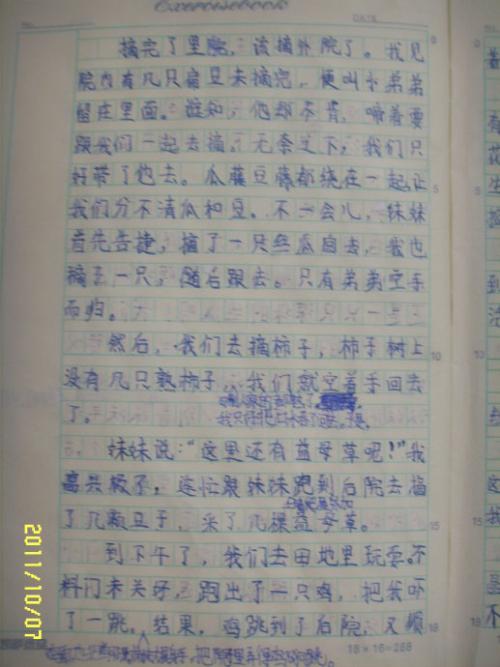 Exercisebook
DATE
摘完了里院，该摘外院了。我见
院内有几只扁豆未摘完，便叫小弟弟
留在里面。谁知，他却不肯，嚷着要
跟我们一起去摘，无奈之下，我们只
好带了他去。瓜藤豆藤都绕在一起让
我们分不清瓜和豆。不一会儿，妹妹
首先告捷，摘了一只丝瓜回去，我也
摘了一只，随后跟去。只有弟弟空手
而归。
然后，我们去摘柿子，柿子树上
没有几只熟柿子，我们就空着手回去
了。
妹妹说：“这里还有益母草呢！”我
高兴极了，连忙跟妹妹跑到后院去摘
了几颗豆子，采了几棵益母草。
到下午了，我们去田地里玩耍。不
料门未关好，跑出了一只鸡，把我吓
了一跳。结果，鸡跳到了后院，又顺
5
10
15
18
18×16=288
2011/10/07